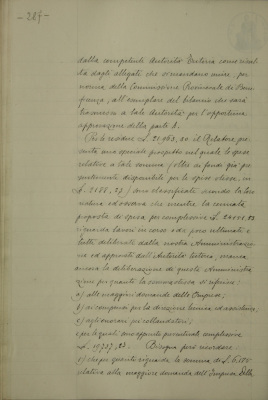 - 285 -
dalla competente Autorità Tutoria come risul-
ta dagli allegati che si mandano unire, per
norma della Commissione Provinciale di Bene-
ficenza, all'esemplare del bilancio che sarà
trasmesso a tale Autorità per l'opportuna
approvazione della parte
Per le residue £. il Relatore pre-
senta uno speciale progetto nel quale le spese
relative a tale somma (oltre ai fondi già pre-
cedentemente disponibili per le spese stesse, in
£. 2188,27) sono classificate secondo la loro
natura ed osserva che mentre la cennata
proposta di spesa per complessive £.
riguarda lavori in corso o da poco ultimati e
tutti deliberati dalla nostra Amministrazio-
ne ed approvati dall'Autorità tutoria, manca
ancora la deliberazione di questa Amministra-
zione per quanto la somma stessa si riferisce:
a) alle maggiori domande delle Imprese;
b) ai compensi per la direzione tecnica ed assistenza;
c) agli onorari pei collaudatori;
e per le quali sono appunto preventivate complessive
£. 19737,23. Bisogna però ricordare:
a) che per quanto riguarda la somma di £. 6.100
relativa alle maggiori domande dell'Impresa